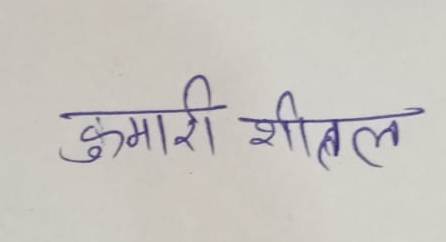 कुमारी शीतल